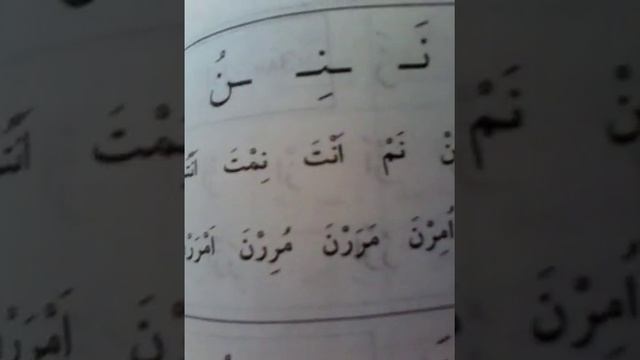 نَـ ـنِـ ـنُ
نَمْ اَنْتَ نِمْتَ
اُمِرْنَ مَرَرْنَ مُرِرْنَ